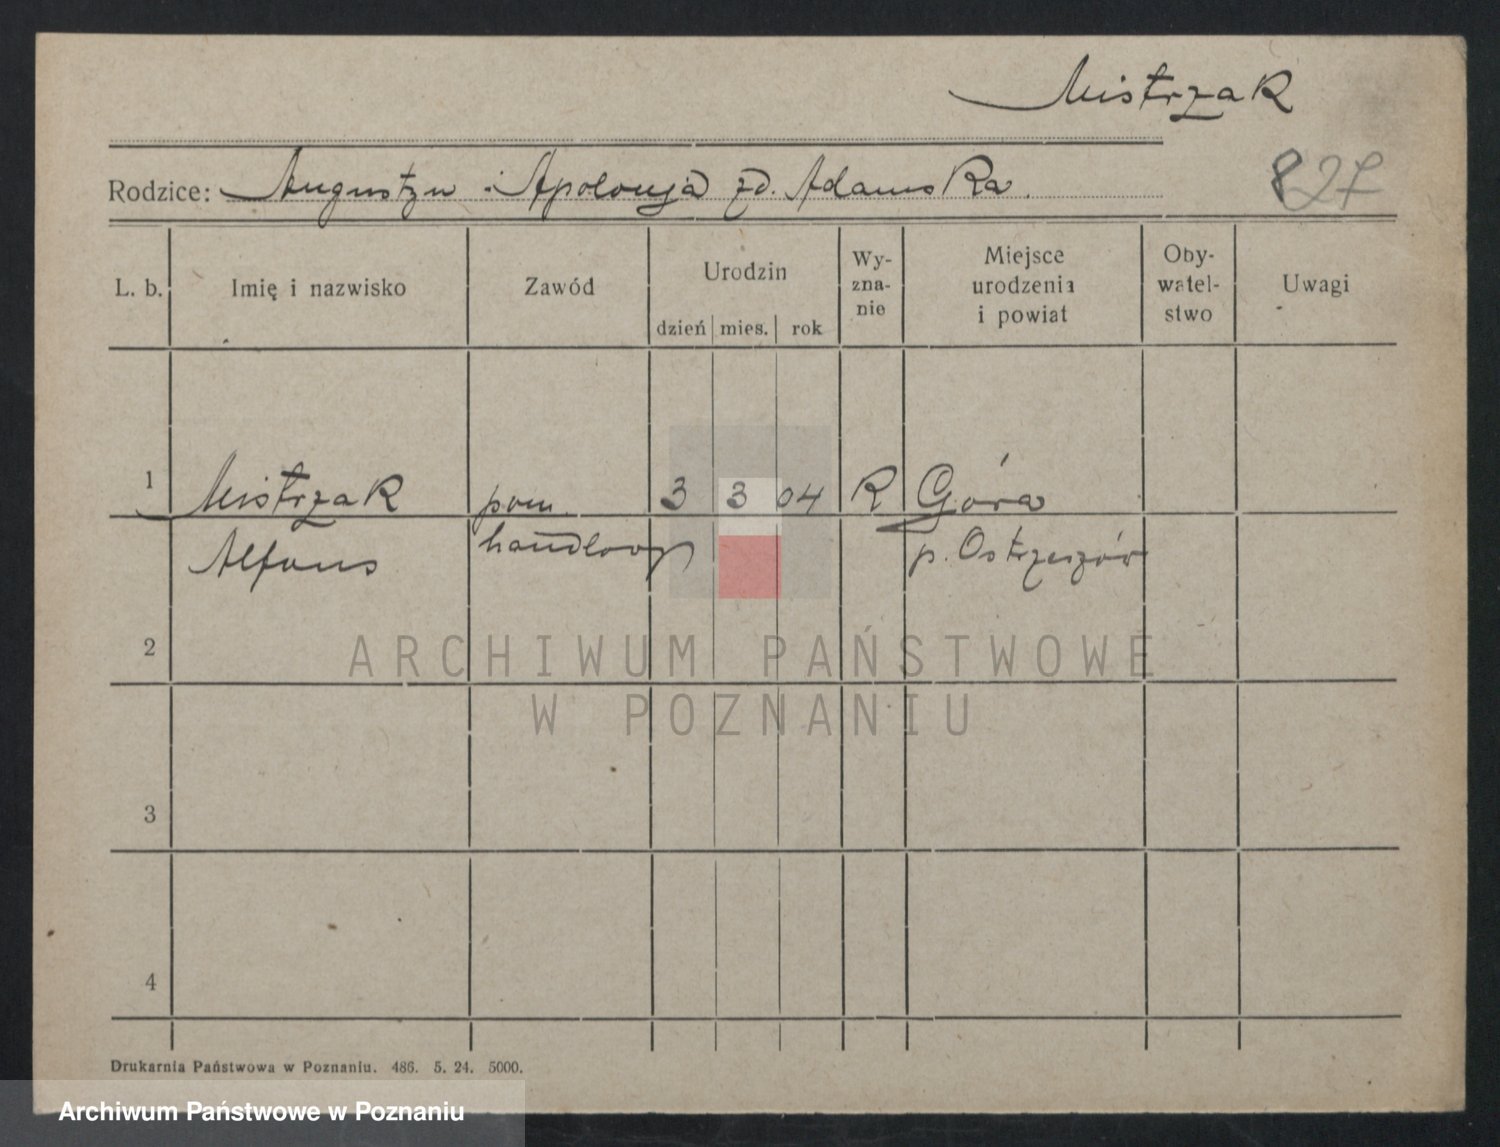 Mistrzak
Rodzice: Augustyn i Apolonja zd. Adamska.
827
L. b. Imię i nazwisko Zawód Urodzin dzień mies. rok Wy-zna-nie Miejsce urodzenia i powiat Oby-watel-stwo Uwagi
1 Mistrzak pom. 3 3 04 R Góra
Alfons handlowy p. Ostrzeszów
2
ARCHIWUM PAŃSTWOWE
W POZNANIU
3
4
Drukarnia Państwowa w Poznaniu. 486. 5. 24. 5000.
Archiwum Państwowe w Poznaniu